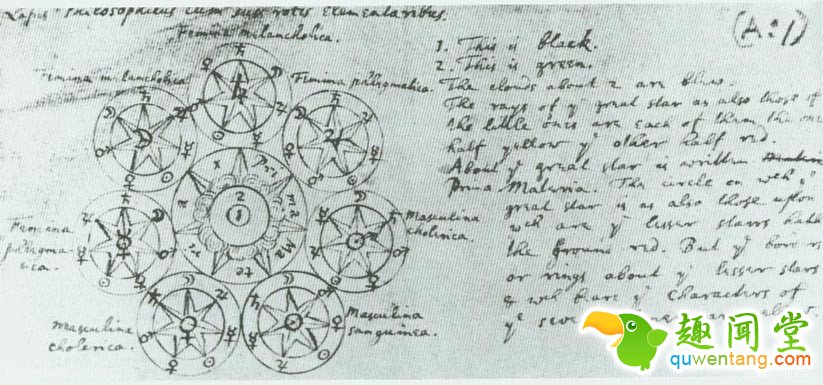 Lapis Philosophicus cum suis rotis Elementaribus.
Femina melancholica.
Femina melancholica
Femina phlegmatica.
Femina phlegmatica.
Masculina cholerica.
Masculina cholerica.
Masculina sanguinea.
Pri ma Ma te ri
2
1
(A:1)
1. This is black.
2. This is green.
The clouds about 2 are blew.
The rays of yᵉ great star as also those of
the little ones are each of them the one
half yellow yᵉ other half red.
About yᵉ great star is written
Prima Materia. The circle on wch yᵉ
great star is as also those upon
wch are yᵉ lesser starrs hath
the ground red. But yᵉ borders
or rings about yᵉ lesser stars
wch bare yᵉ characters of
yᵉ seven
趣闻堂
quwentang.com